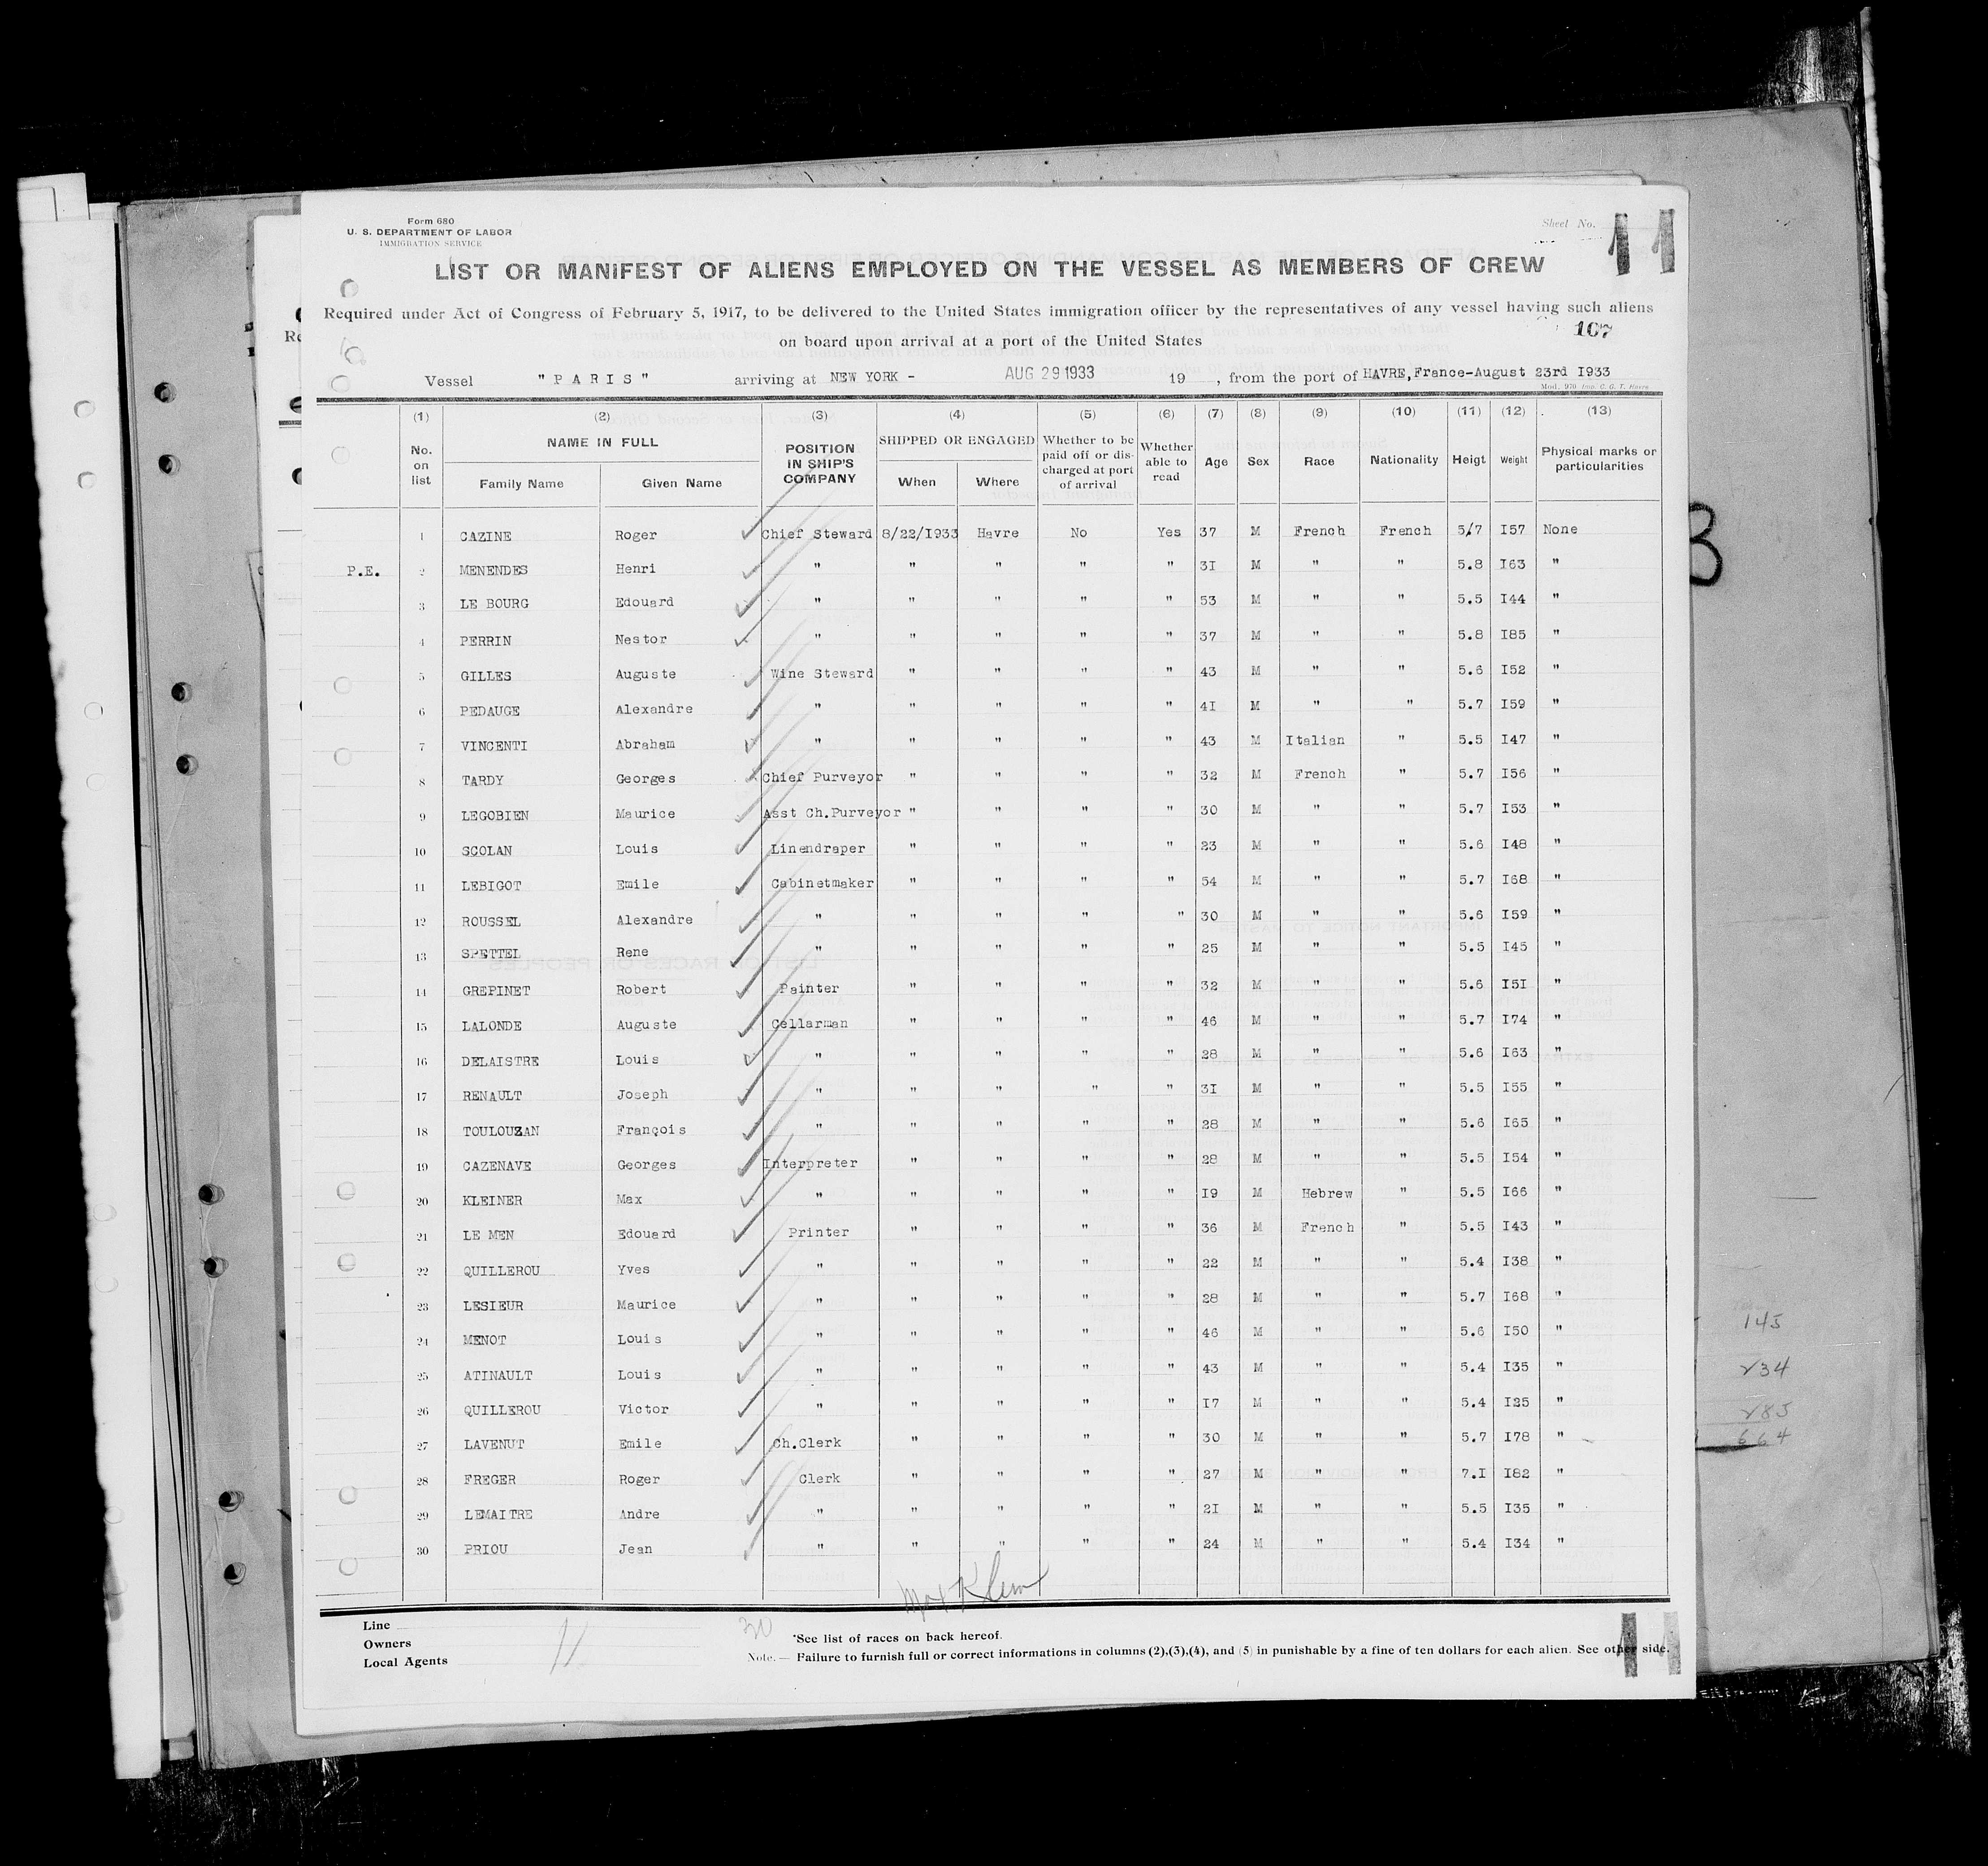 Form 680
U. S. DEPARTMENT OF LABOR
IMMIGRATION SERVICE
Sheet No. 11
LIST OR MANIFEST OF ALIENS EMPLOYED ON THE VESSEL AS MEMBERS OF CREW
Required under Act of Congress of February 5, 1917, to be delivered to the United States immigration officer by the representatives of any vessel having such aliens
on board upon arrival at a port of the United States
107
Vessel "PARIS" arriving at NEW YORK - AUG 29 1933 19 , from the port of HAVRE, France-August 23rd I933
Mod. 970 Imp. C. G. T. Havre
(1) (2) (3) (4) (5) (6) (7) (8) (9) (10) (11) (12) (13)
No. on list NAME IN FULL Family Name Given Name POSITION IN SHIP'S COMPANY SHIPPED OR ENGAGED When Where Whether to be paid off or discharged at port of arrival Whether able to read Age Sex Race Nationality Heigt Weight Physical marks or particularities
1 CAZINE Roger Chief Steward 8/22/I933 Havre No Yes 37 M French French 5/7 I57 None
P.E. 2 MENENDES Henri " " " " " 3I M " " 5.8 I63 "
3 LE BOURG Edouard " " " " " 53 M " " 5.5 I44 "
4 PERRIN Nestor " " " " " 37 M " " 5.8 I85 "
5 GILLES Auguste Wine Steward " " " " 43 M " " 5.6 I52 "
6 PEDAUGE Alexandre " " " " " 4I M " " 5.7 I59 "
7 VINCENTI Abraham " " " " " 43 M Italian " 5.5 I47 "
8 TARDY Georges Chief Purveyor " " " " 32 M French " 5.7 I56 "
9 LEGOBIEN Maurice Asst Ch.Purveyor " " " " 30 M " " 5.7 I53 "
10 SCOLAN Louis Linendraper " " " " 23 M " " 5.6 I48 "
11 LEBIGOT Emile Cabinetmaker " " " " 54 M " " 5.7 I68 "
12 ROUSSEL Alexandre " " " " " 30 M " " 5.6 I59 "
13 SPETTEL Rene " " " " " 25 M " " 5.5 I45 "
14 GREPINET Robert Painter " " " " 32 M " " 5.6 I5I "
15 LALONDE Auguste Cellarman " " " " 46 M " " 5.7 I74 "
16 DELAISTRE Louis " " " " " 28 M " " 5.6 I63 "
17 RENAULT Joseph " " " " " 3I M " " 5.5 I55 "
18 TOULOUZAN François " " " " " 28 M " " 5.6 I65 "
19 CAZENAVE Georges Interpreter " " " " 28 M " " 5.5 I54 "
20 KLEINER Max " " " " " I9 M Hebrew " 5.5 I66 "
21 LE MEN Edouard Printer " " " " 36 M French " 5.5 I43 "
22 QUILLEROU Yves " " " " " 22 M " " 5.4 I38 "
23 LESIEUR Maurice " " " " " 28 M " " 5.7 I68 "
24 MENOT Louis " " " " " 46 M " " 5.6 I50 "
25 ATINAULT Louis " " " " " 43 M " " 5.4 I35 "
26 QUILLEROU Victor " " " " " I7 M " " 5.4 I25 "
27 LAVENUT Emile Ch.Clerk " " " " 30 M " " 5.7 I78 "
28 FREGER Roger Clerk " " " " 27 M " " 7.I I82 "
29 LEMAITRE Andre " " " " " 2I M " " 5.5 I35 "
30 PRIOU Jean " " " " " 24 M " " 5.4 I34 "
Line
Owners
Local Agents
11
30
*See list of races on back hereof.
Note. — Failure to furnish full or correct informations in columns (2),(3),(4), and (5) in punishable by a fine of ten dollars for each alien. See other side.
11
145
234
285
664